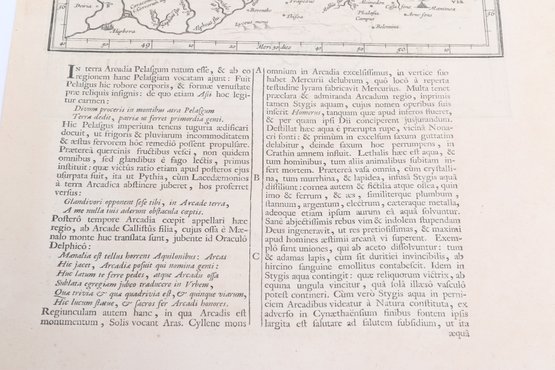 Psofis
Phalasia
Campus
Mantinea
Belemina
Hyphana
49
50
Meridies
50
51
A
B
C
IN terra Arcadia Pelasgum natum esse, & ab eo
regionem hanc Pelasgiam vocatam ajunt: Fuit
Pelasgus hic robore corporis, & formæ venustate
præ reliquis insignis: de quo etiam Asius hoc legi-
tur carmen:
Divom proceris in montibus atra Pelasgum
Terra dedit, patria ut ferret primordia genti.
Hic Pelasgus imperium tenens tuguria ædificari
docuit, ut frigoris & pluviarum incommoditatem
& æstus fervorem hoc remedio possent propulsare.
Præterea quercinis frucibus vesci, non quidem
omnibus, sed glandibus è fago lectis, primus
instituit: quæ victûs ratio etiam apud posteros ejus
usurpata fuit, ita ut Pythia, cùm Lacedæmonios
à terra Arcadica abstinere juberet, hos proferret
versus:
Glandivori opponent sese tibi, in Arcade terra,
A me nulla tuis aderunt obstacula coeptis.
Posterò tempore Arcadia cœpit appellari hæc
regio, ab Arcade Callistûs filia, cujus ossa è Mæ-
nalo monte huc translata sunt, jubente id Oraculo
Delphicô:
Mænalia est tellus horrens Aquilonibus: Arcas
Hic jacet, Arcadia posuit qui nomina genti:
Huc latum te ferre pedes, atque Arcadis ossa
Sublata egregiam jubeo traducere in Urbem,
Qua trivia & qua quadrivia est, & quinque viarum,
Hic lucum statue, & sacros fer Arcadi honores.
Regiunculam autem hanc, in qua Arcadis est
monumentum, Solis vocant Aras. Cyllene mons
omnium in Arcadia excelsissimus, in vertice suo
habet Mercurii delubrum, quô locô à reperta
testudine lyram fabricavit Mercurius. Multa tenet
præclara & admiranda Arcadum regio, inprimis
tamen Stygis aquam, cujus nomen operibus suis
inserit Homerus, tanquam quæ apud inferos flueret,
& per quam ipsi Dii conciperent jusjurandum.
Destillat hæc aqua è prærupta rupe, vicinâ Nona-
cri fonti: & primùm in excelsum saxum guttatim
delabitur, deinde saxum hoc perrumpens, in
Crathin amnem influit. Lethalis hæc est aqua, &
tum hominibus, tum aliis animalibus subitam in-
fert mortem. Præterea vasa omnia, cùm crystalli-
na, tum murrhina, & lapides, infusâ Stygis aquâ
dissiliunt: cornea autem & fictilia atque ossea, quin
imo & ferrum, & æs, similiterque plumbum,
stannum, argentum, electrum, cæteraque metalla,
adeoque etiam ipsum aurum eâ aquâ solvuntur.
Sanè abjectissimis rebus vim & indolem stupendam
Deus ingeneravit, ut res pretiosissimas, & maximi
apud homines æstimii arcanâ vi superent. Exem-
plò sunt uniones, qui ab aceto dissolvuntur: tum
& adamas lapis, cùm sit duritiei invincibilis, ab
hircino sanguine emollitus contabescit. Idem in
Stygis aqua contingit: quæ reliquorum victrix, ab
equina ungula vincitur, quâ solâ illæso vasculô
potest contineri. Cùm verò Stygis aqua in perni-
ciem Arcadibus videatur à Natura constituta, ex
adverso in Cynæthensium finibus fontem ipsis
largita est salutare ad salutem subsidium, ut ita
æquâ